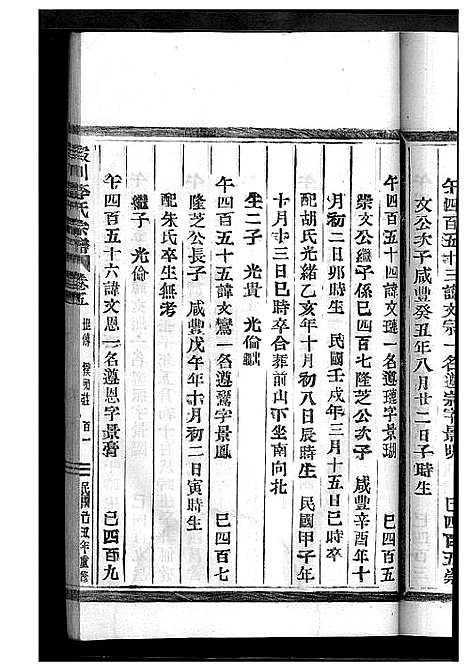 午四百五十三諱文宗一名遵崇字景
文公次子 咸豐癸丑年八月廿二日子時生
巳四百五
午四百五十四諱文璉一名遵璉字景瑚 巳四百五
崇文公繼子係巳四百七隆芝公次子 咸豐辛酉年十
月初二日卯時生 民國壬戌年三月十五日巳時卒
配胡氏光緒乙亥年十月初八日辰時生 民國甲子年
十月十三日巳時卒合葬前山下坐南向北
生二子 光貴 光倫
午四百五十五諱文鸞一名遵鸞字景鳳 巳四百七
隆芝公長子 咸豐戊午年十月初二日寅時生
配朱氏卒生無考
繼子 光倫
午四百五十六諱文恩一名遵恩字景膏 巳四百九
李氏宗譜 卷五 世傳 百一 民國乙丑年重修